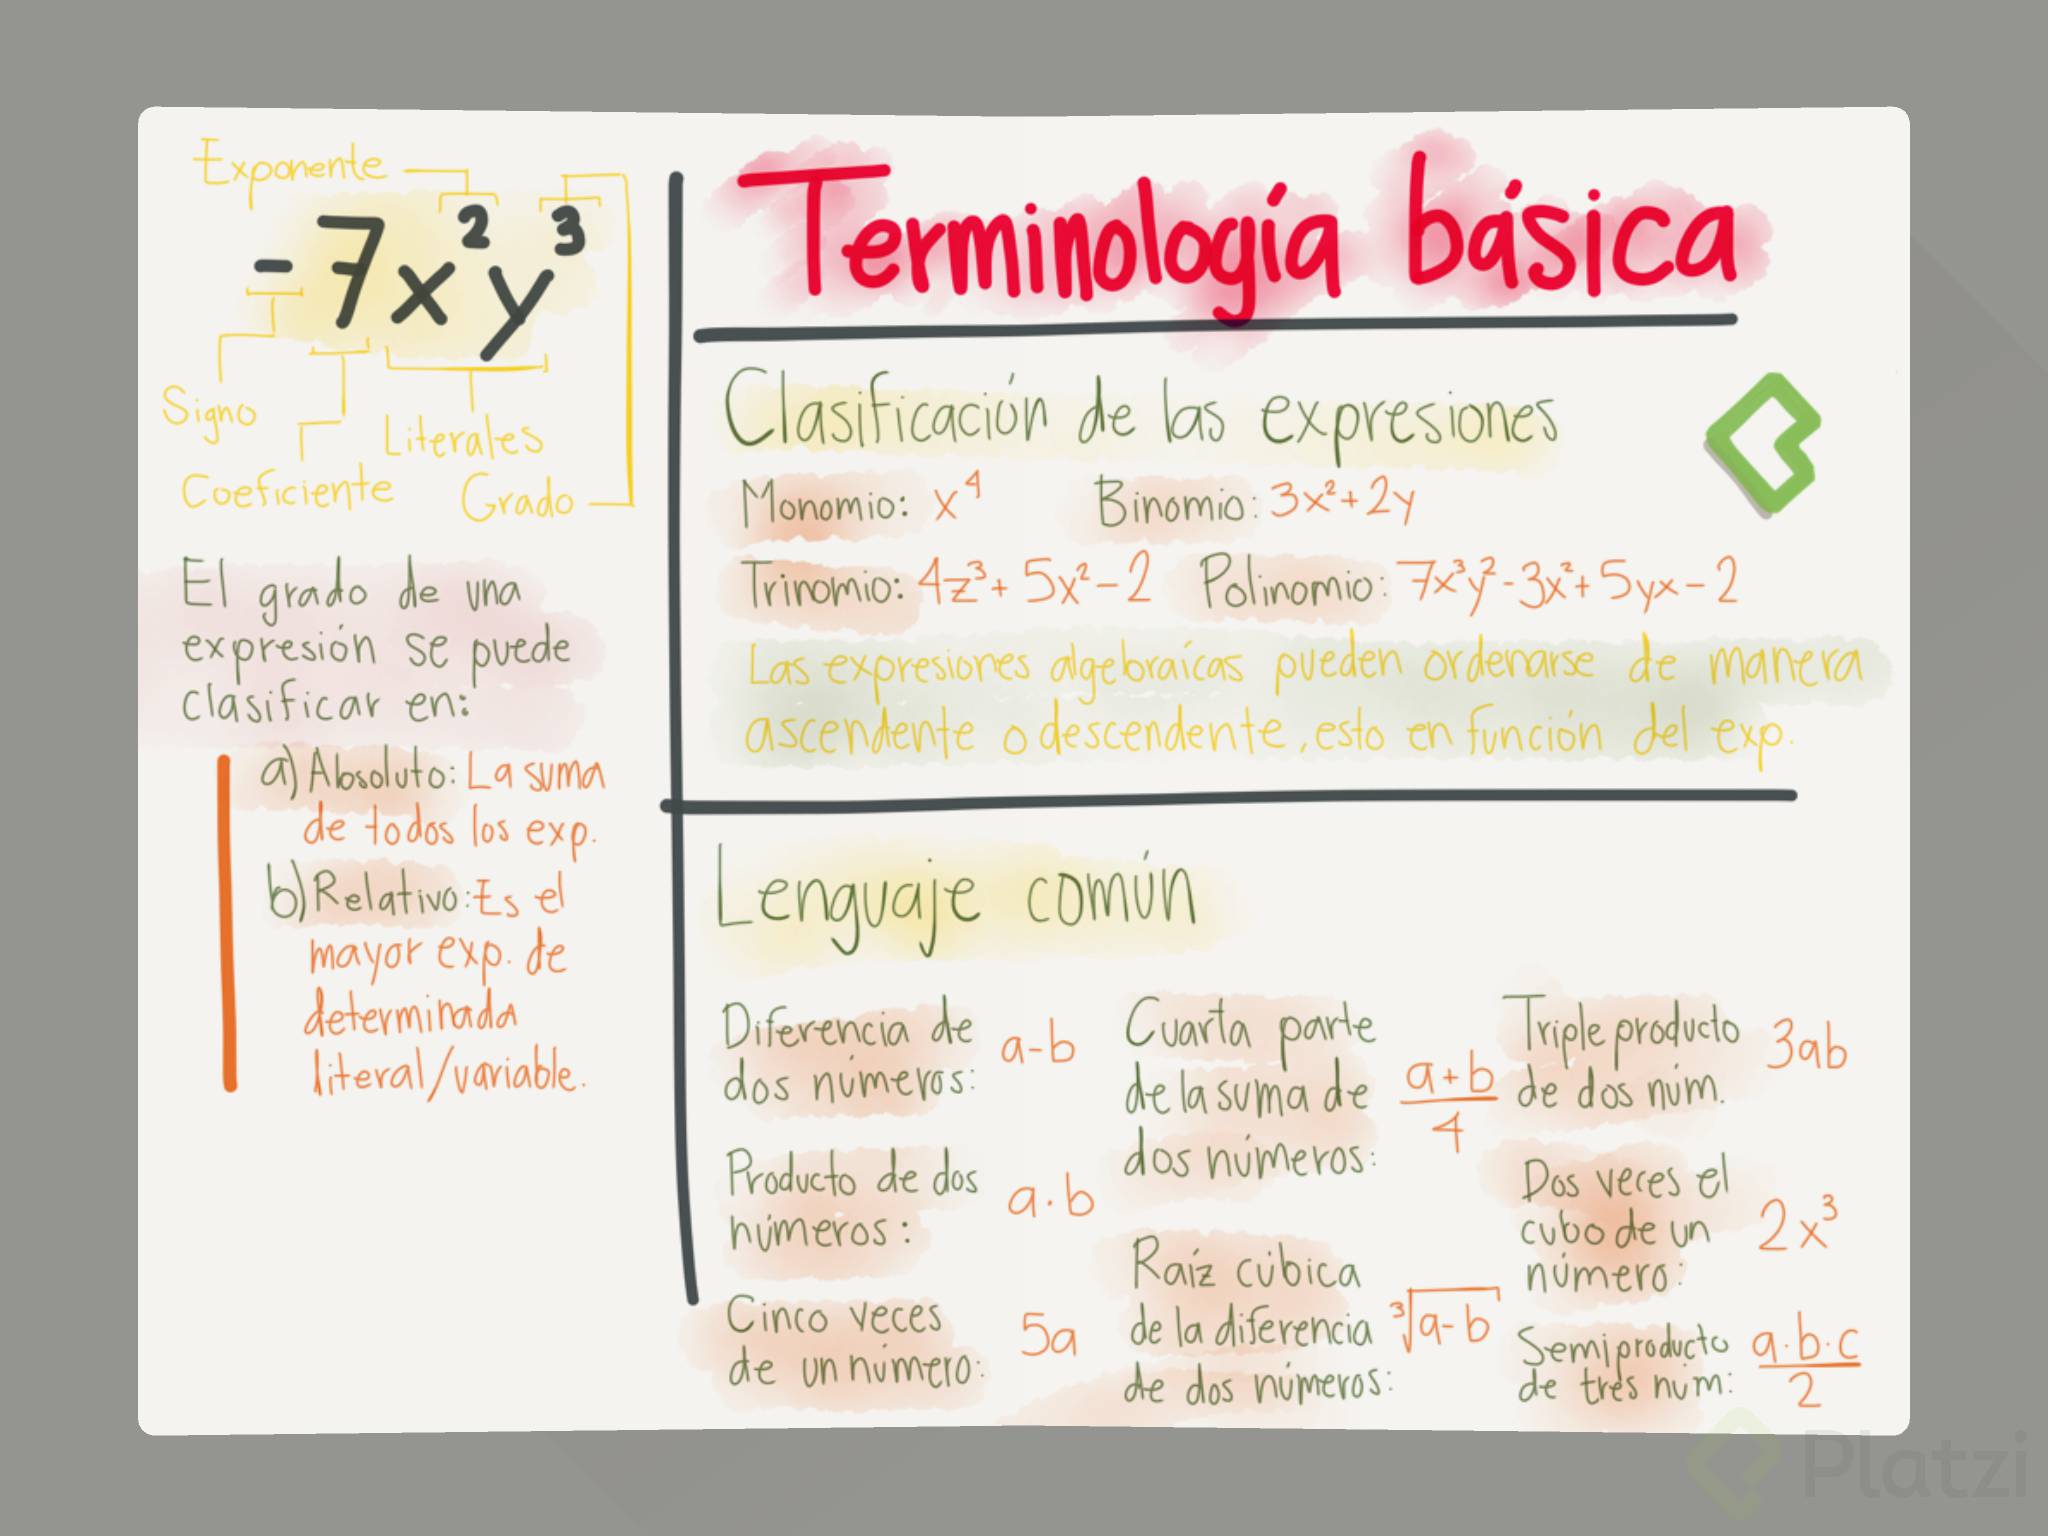 Exponente
-7x²y³
Signo
Literales
Coeficiente
Grado
El grado de una
expresión se puede
clasificar en:
a) Absoluto: La suma
de todos los exp.
b) Relativo: Es el
mayor exp. de
determinada
literal/variable.
Terminología básica
Clasificación de las expresiones
Monomio: x⁴ Binomio: 3x²+2y
Trinomio: 4z³+5x²-2 Polinomio: 7x³y²-3x²+5yx-2
Las expresiones algebraícas pueden ordenarse de manera
ascendente o descendente, esto en función del exp.
Lenguaje común
Diferencia de
dos números: a-b
Producto de dos
números: a·b
Cinco veces
de un número: 5a
Cuarta parte
de la suma de
dos números:
a+b
4
Raíz cúbica
de la diferencia
de dos números:
³√a-b
Triple producto
de dos núm. 3ab
Dos veces el
cubo de un
número: 2x³
Semiproducto
de tres núm:
a·b·c
2
Platzi